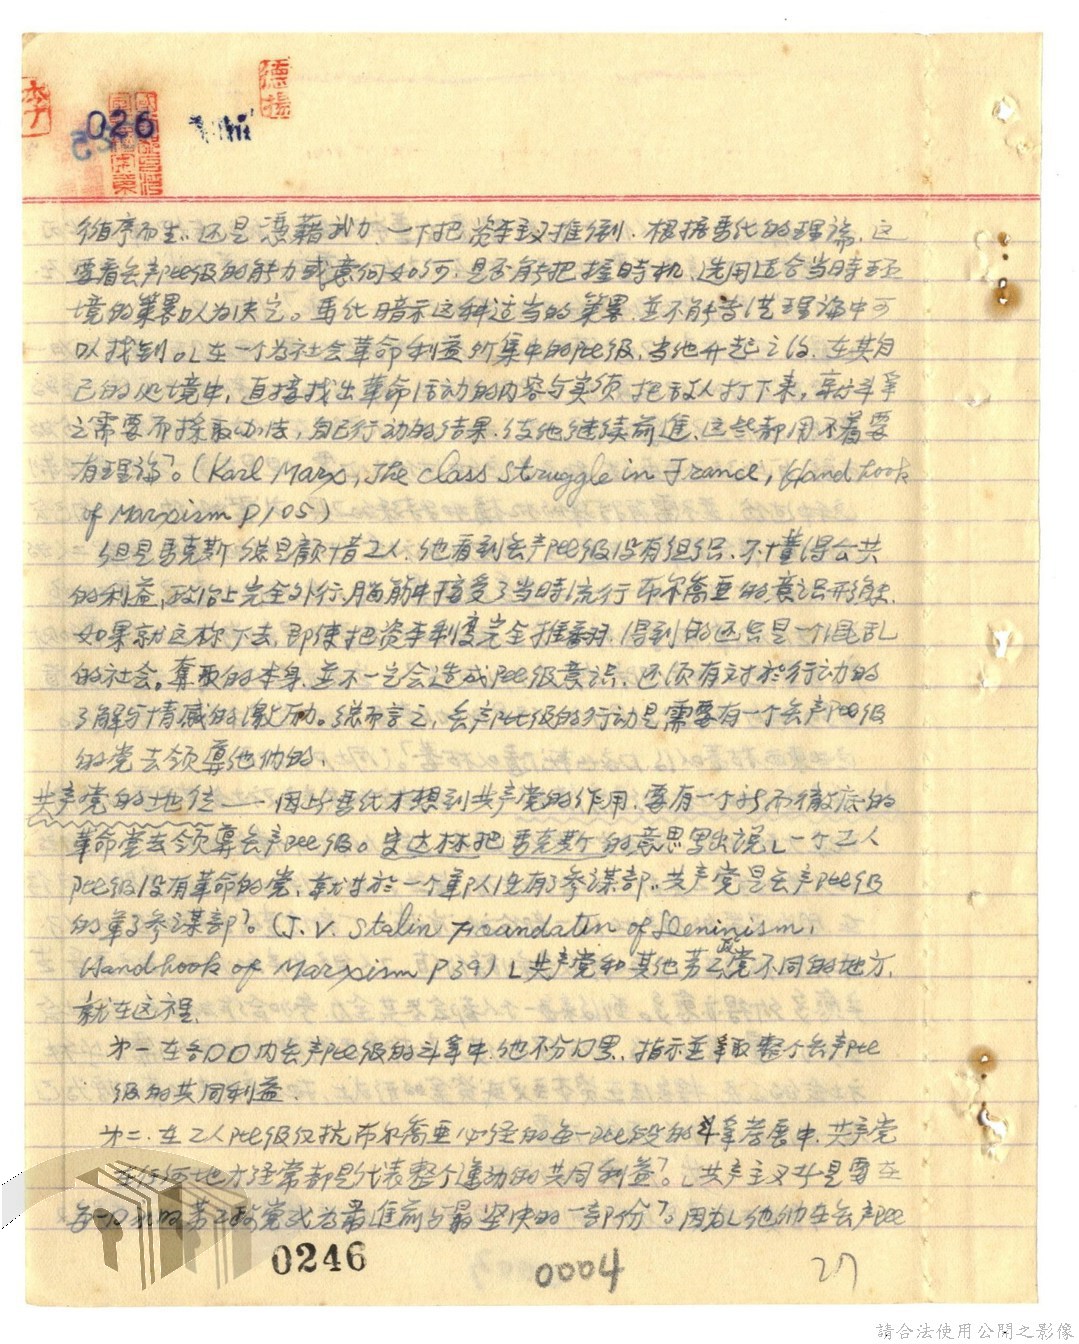 李
德揚
026
循序而生..还是憑藉武力.一下把资本主义推倒.根据馬氏的理論.这
要看無产阶级的能力或意向如何.是否能把握時机.选用适合当時环
境的策畧以为决定。馬氏暗示这种适当的策畧.並不能書其理論中可
以找到。L在一个为社会革命利益所集中的阶级,当他升起之後.在其自
己的处境中,直接找出革命活动的内容与实须.把敌人打下来,斗争
之需要而採取办法,自己行动的结果.使他继续前進.这些都用不着要
有理論⁊。(Karl Marx, The class struggle in France, Handbook
of Marxism P105)
但是馬克斯總是顧惜工人.他看到無产阶级没有组织.不懂得公共
的利益,政治上完全外行.脑筋中接受了当時流行布尔喬亜的意识形態.
如果就这樣下去.即使把资本制度完全推翻.得到的还只是一个混乱
的社会。奪取的本身.並不一定会造成阶级意识.还须有对於行动的
了解与情感的激励。總而言之,無产阶级的行动是需要有一个無产阶级
的党去领導他们的.
共产党的地位—因此馬氏才想到共产党的作用.要有一个新而徹底的
革命党去领導無产阶级。史达林把馬克斯的意思写出说L一个工人
阶级没有革命的党,就等於一个軍队没有了参謀部..共产党是無产阶级
的軍事参謀部⁊。(J. V. Stalin Foundation of Leninism,
Handbook of Marxism P39) L共产党和其他劳工政党不同的地方.
就在这裡.
第一.在各口口内無产阶级的斗争中.他不分口界.指示並争取整个無产阶
级的共同利益.
第二.在工人阶级反抗布尔喬亜必经的每一阶段的斗争发展中.共产党
在任何地方经常都是代表整个運动的共同利益⁊。L共产主义斗是需在
每一口家的劳工政党成为最進前与最坚决的一部份⁊。因为L他们在無产阶
0246
0004
27
請合法使用公開之影像